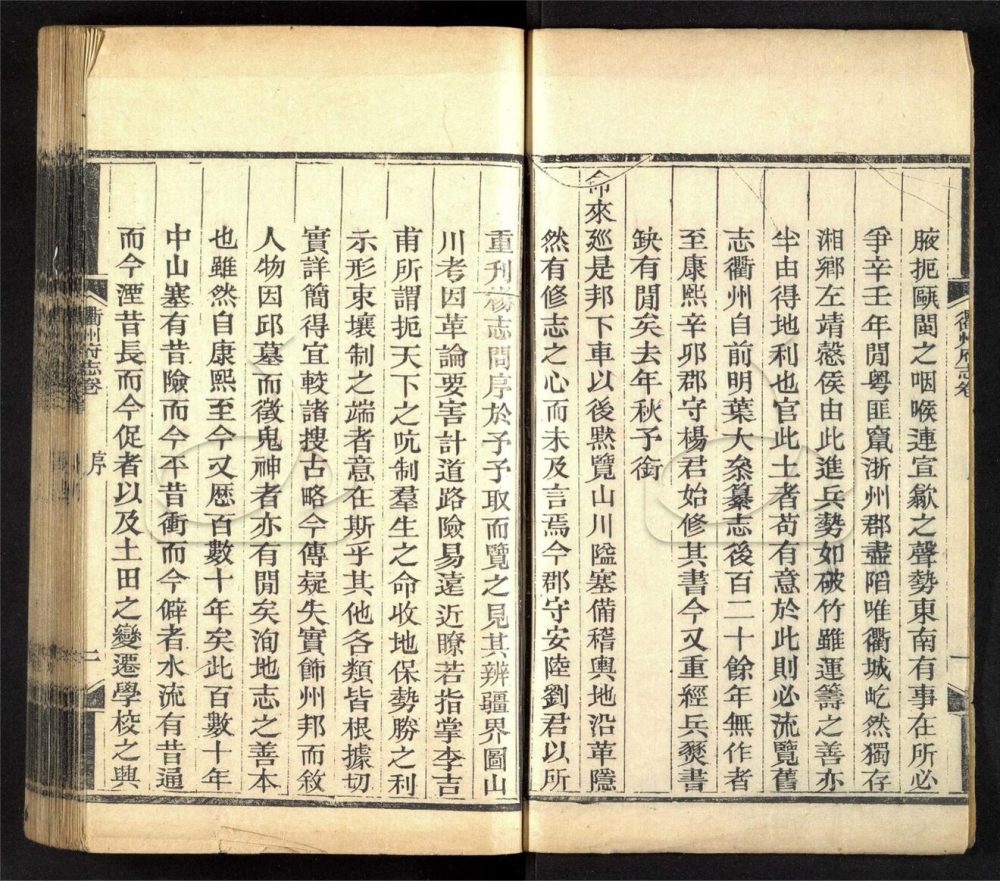 腋扼甌閩之咽喉連宣歙之聲勢東南有事在所必
爭辛壬年閒粵匪竄浙州郡盡陷唯衢城屹然獨存
湘鄉左靖愨侯由此進兵勢如破竹雖運籌之善亦
半由得地利也官此土者苟有意於此則必流覽舊
志衢州自前明葉大叅纂志後百二十餘年無作者
至康熙辛卯郡守楊君始修其書今又重經兵燹書
缺有閒矣去年秋予銜
命來廵是邦下車以後黙覽山川隘塞備稽輿地沿革隱
然有修志之心而未及言焉今郡守安陸劉君以所
重刊楊志問序於予予取而覽之見其辨疆界圖山
川考因革論要害計道路險易遠近瞭若指掌李吉
甫所謂扼天下之吭制羣生之命收地保勢勝之利
示形束壤制之端者意在斯乎其他各類皆根據切
實詳簡得宜較諸搜古略今傳疑失實飾州邦而敘
人物因邱墓而徵鬼神者亦有閒矣洵地志之善本
也雖然自康熙至今又歷百數十年矣此百數十年
中山塞有昔險而今平昔衝而今僻者水流有昔通
而今湮昔長而今促者以及土田之變遷學校之興
衢州府志卷
序
二
衢州府志卷
一